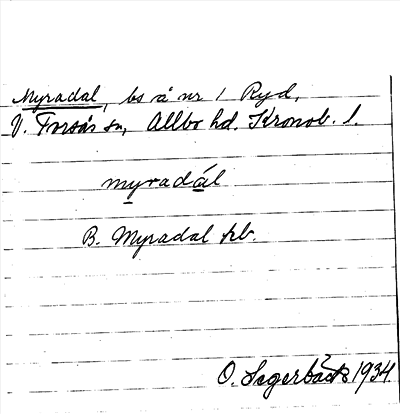 Myradal, bs å nr 1 Ryd,
V. Torsås sn, Allbo hd. Kronob. l.
myradál
B. Myradal kb.
O. Segerbäck 1934